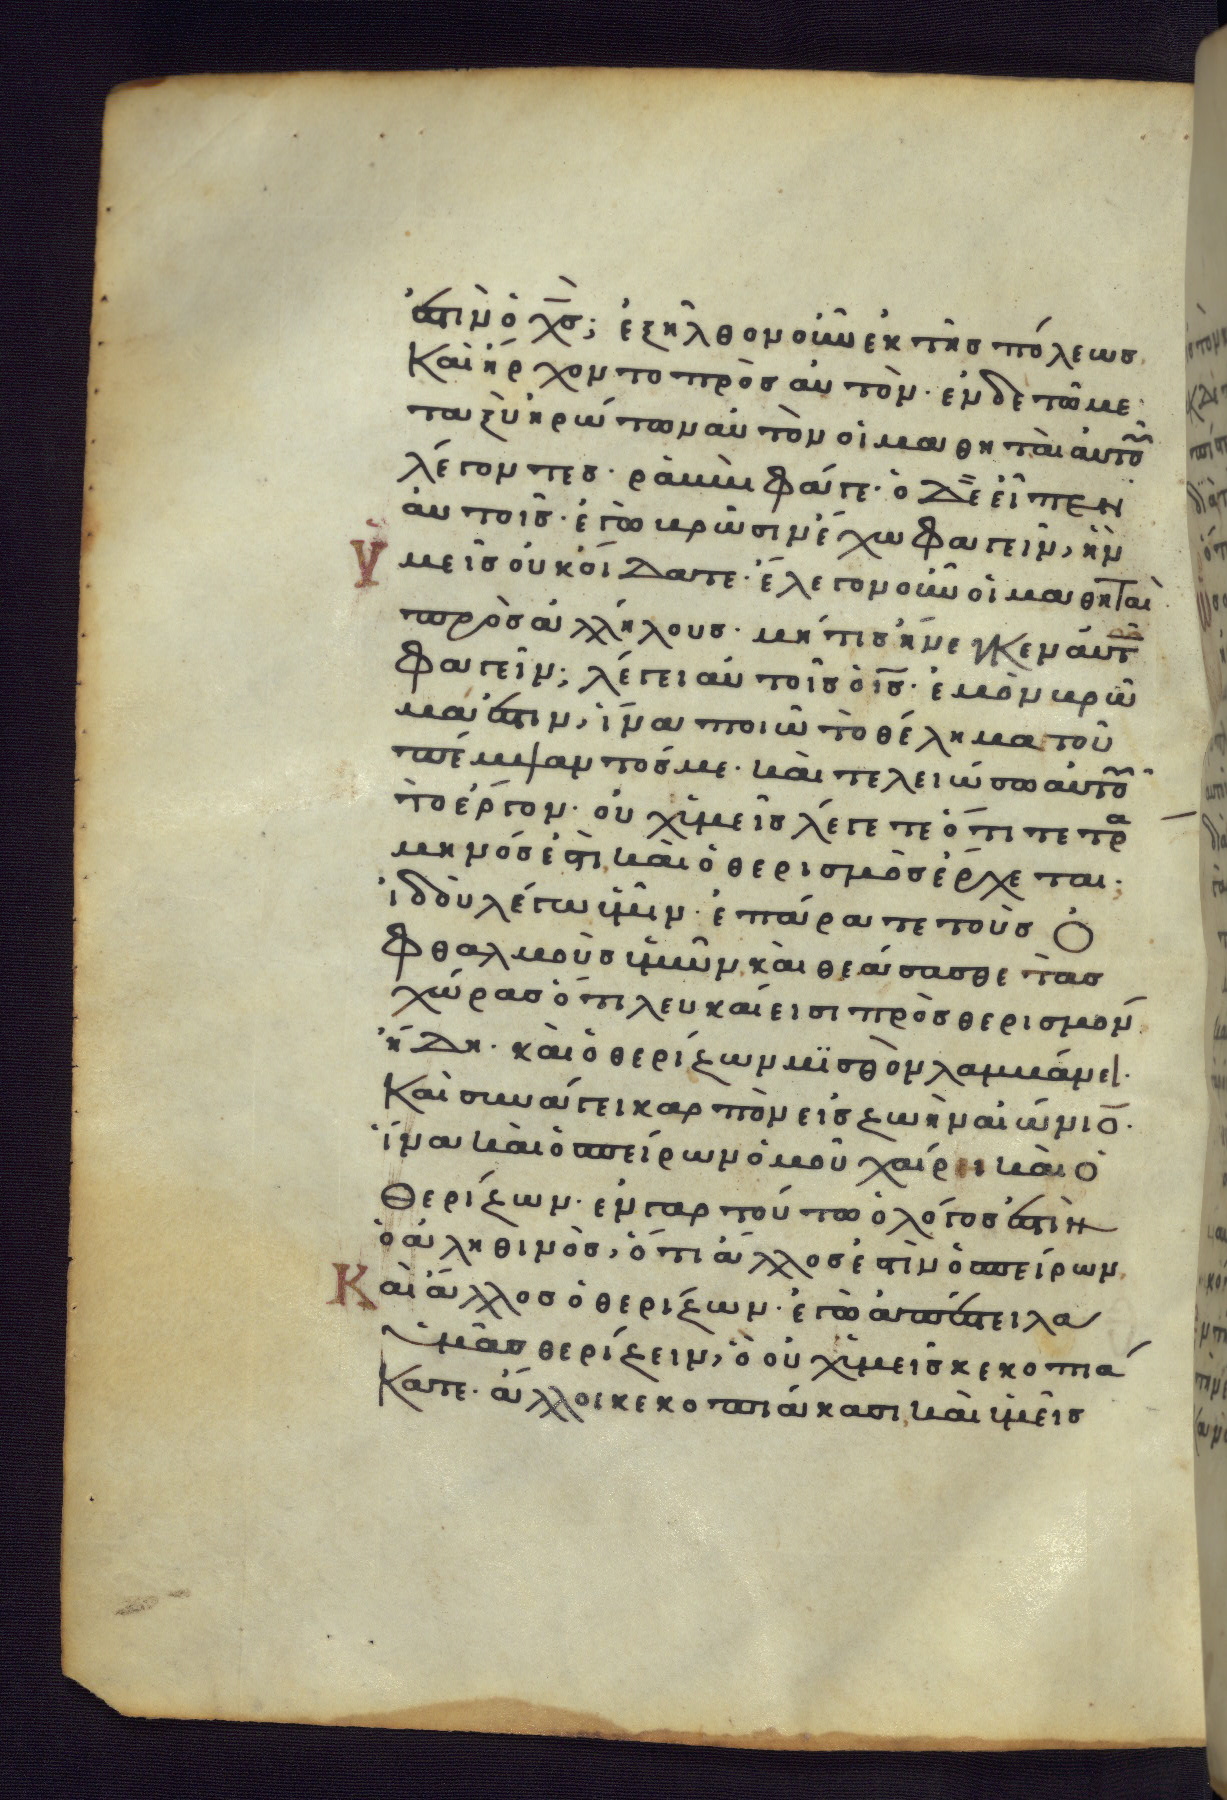 ἐστὶν ὁ χς̅; ἐξῆλθον οὖν ἐκ τῆς πόλεως
Καὶ ἤρχοντο πρὸς αὐτόν· ἐν δὲ τῶ με
ταξὺ ἠρώτων αὐτὸν οἱ μαθηταὶ αὐτοῦ
λέγοντες· ῥαββὶ φάγε· ὁ δὲ εἶπεν
αὐτοῖς· ἐγὼ βρῶσιν ἔχω φαγεῖν, ἣν
ὑμεῖς οὐκ οἴδατε· ἔλεγον οὖν οἱ μαθηταὶ
πρὸς ἀλλήλους· μή τις ἤνεγκεν αὐτ
φαγεῖν; λέγει αὐτοῖς ὁ ις̅· ἐμὸν βρῶ
μά ἐστιν, ἵνα ποιῶ τὸ θέλημα τοῦ
πέμψαντός με· καὶ τελειώσω αὐτοῦ
τὸ ἔργον· οὐχ ὑμεῖς λέγετε ὅτι τετρα
μηνός ἐστι καὶ ὁ θερισμὸς ἔρχεται·
ἰδοὺ λέγω ὑμῖν· ἐπάρατε τοὺς ὀ
φθαλμοὺς ὑμῶν καὶ θεάσασθε τὰς
χώρας ὅτι λευκαί εισι πρὸς θερισμόν
ἤδη· καὶ ὁ θερίζων μϊσθὸν λαμβάνει·
Καὶ συνάγει καρπὸν εἰς ζωὴν αἰώνιο̅·
ἵνα καὶ ὁ σπείρων ὁμοῦ χαίρει καὶ ὁ
θερίζων· ἐν γαρ τούτω ὁ λόγος ἐστὶν
ὁ ἀληθινὸς, ὅτι ἄλλος ἐστὶν ὁ σπείρων
Καὶ ἄλλος ὁ θερίζων· ἐγὼ ἀπέστειλα
ὑμᾶς θερίζειν, ὃ οὐχ ὑμεῖς κεκοπιά
Κατε· ἄλλοι κεκοπιάκασι καὶ ὑμεῖς